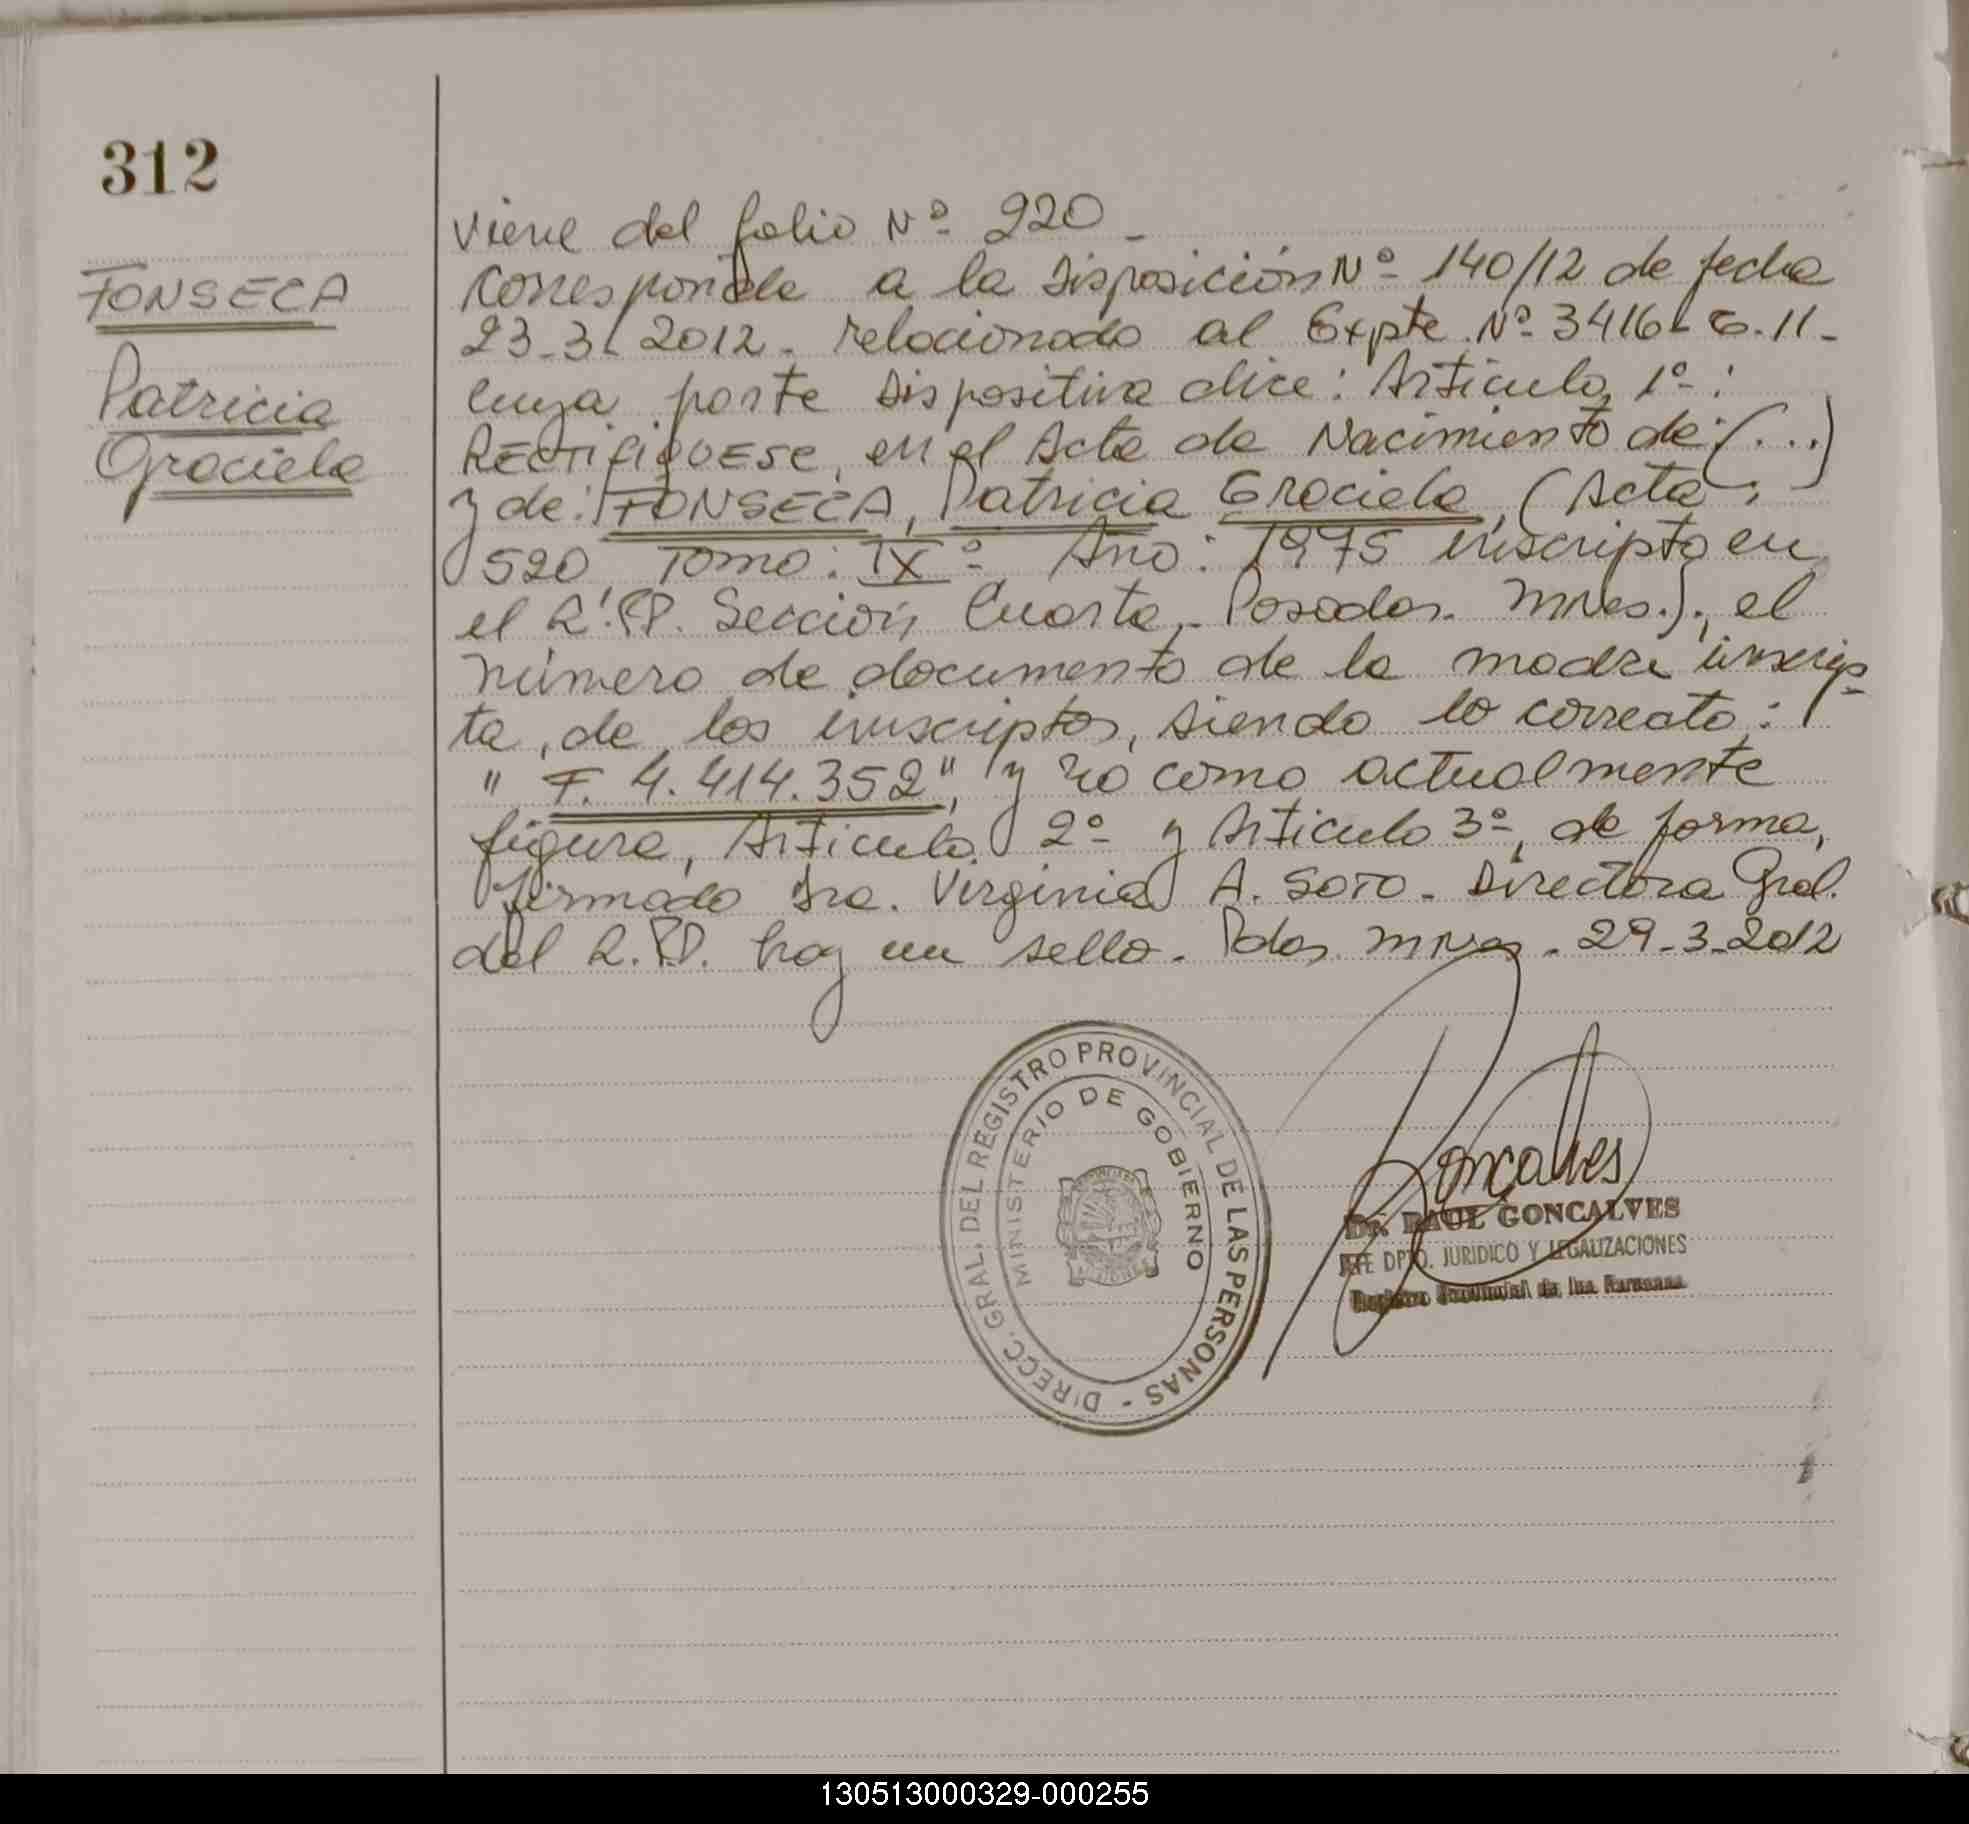 312
FONSECA
Patricia
Graciela
Viene del folio Nº 220 -
Corresponde a la Disposición Nº 140/12 de fecha
23-3-2012 - relacionado al Expte. Nº 3416-G-11-
cuya parte Dispositiva dice: Artículo 1º:
RECTIFIQUESE, en el Acta de Nacimiento de: (...)
y de: FONSECA, Patricia Graciela, (Acta,
520 Tomo: IXº Año: 1975 inscripto en
el R.P.P. Sección Cuarta - Posadas. Mnes.), el
número de documento de la madre inscrip-
ta, de los inscriptos, siendo lo correcto:
" F. 4.414.352", y no como actualmente
figura, Artículo 2º y Artículo 3º, de forma,
firmado Sra. Virginia A. SOTO - Directora Gral.
del R.P.P. hay un sello - Pdas Mnes - 29-3-2012
DIRECC. GRAL. DEL REGISTRO PROVINCIAL DE LAS PERSONAS -
MINISTERIO DE GOBIERNO
Gonçalves
Dr. RAUL GONCALVES
JEFE DPTO. JURIDICO Y LEGALIZACIONES
Registro Provincial de las Personas
130513000329-000255